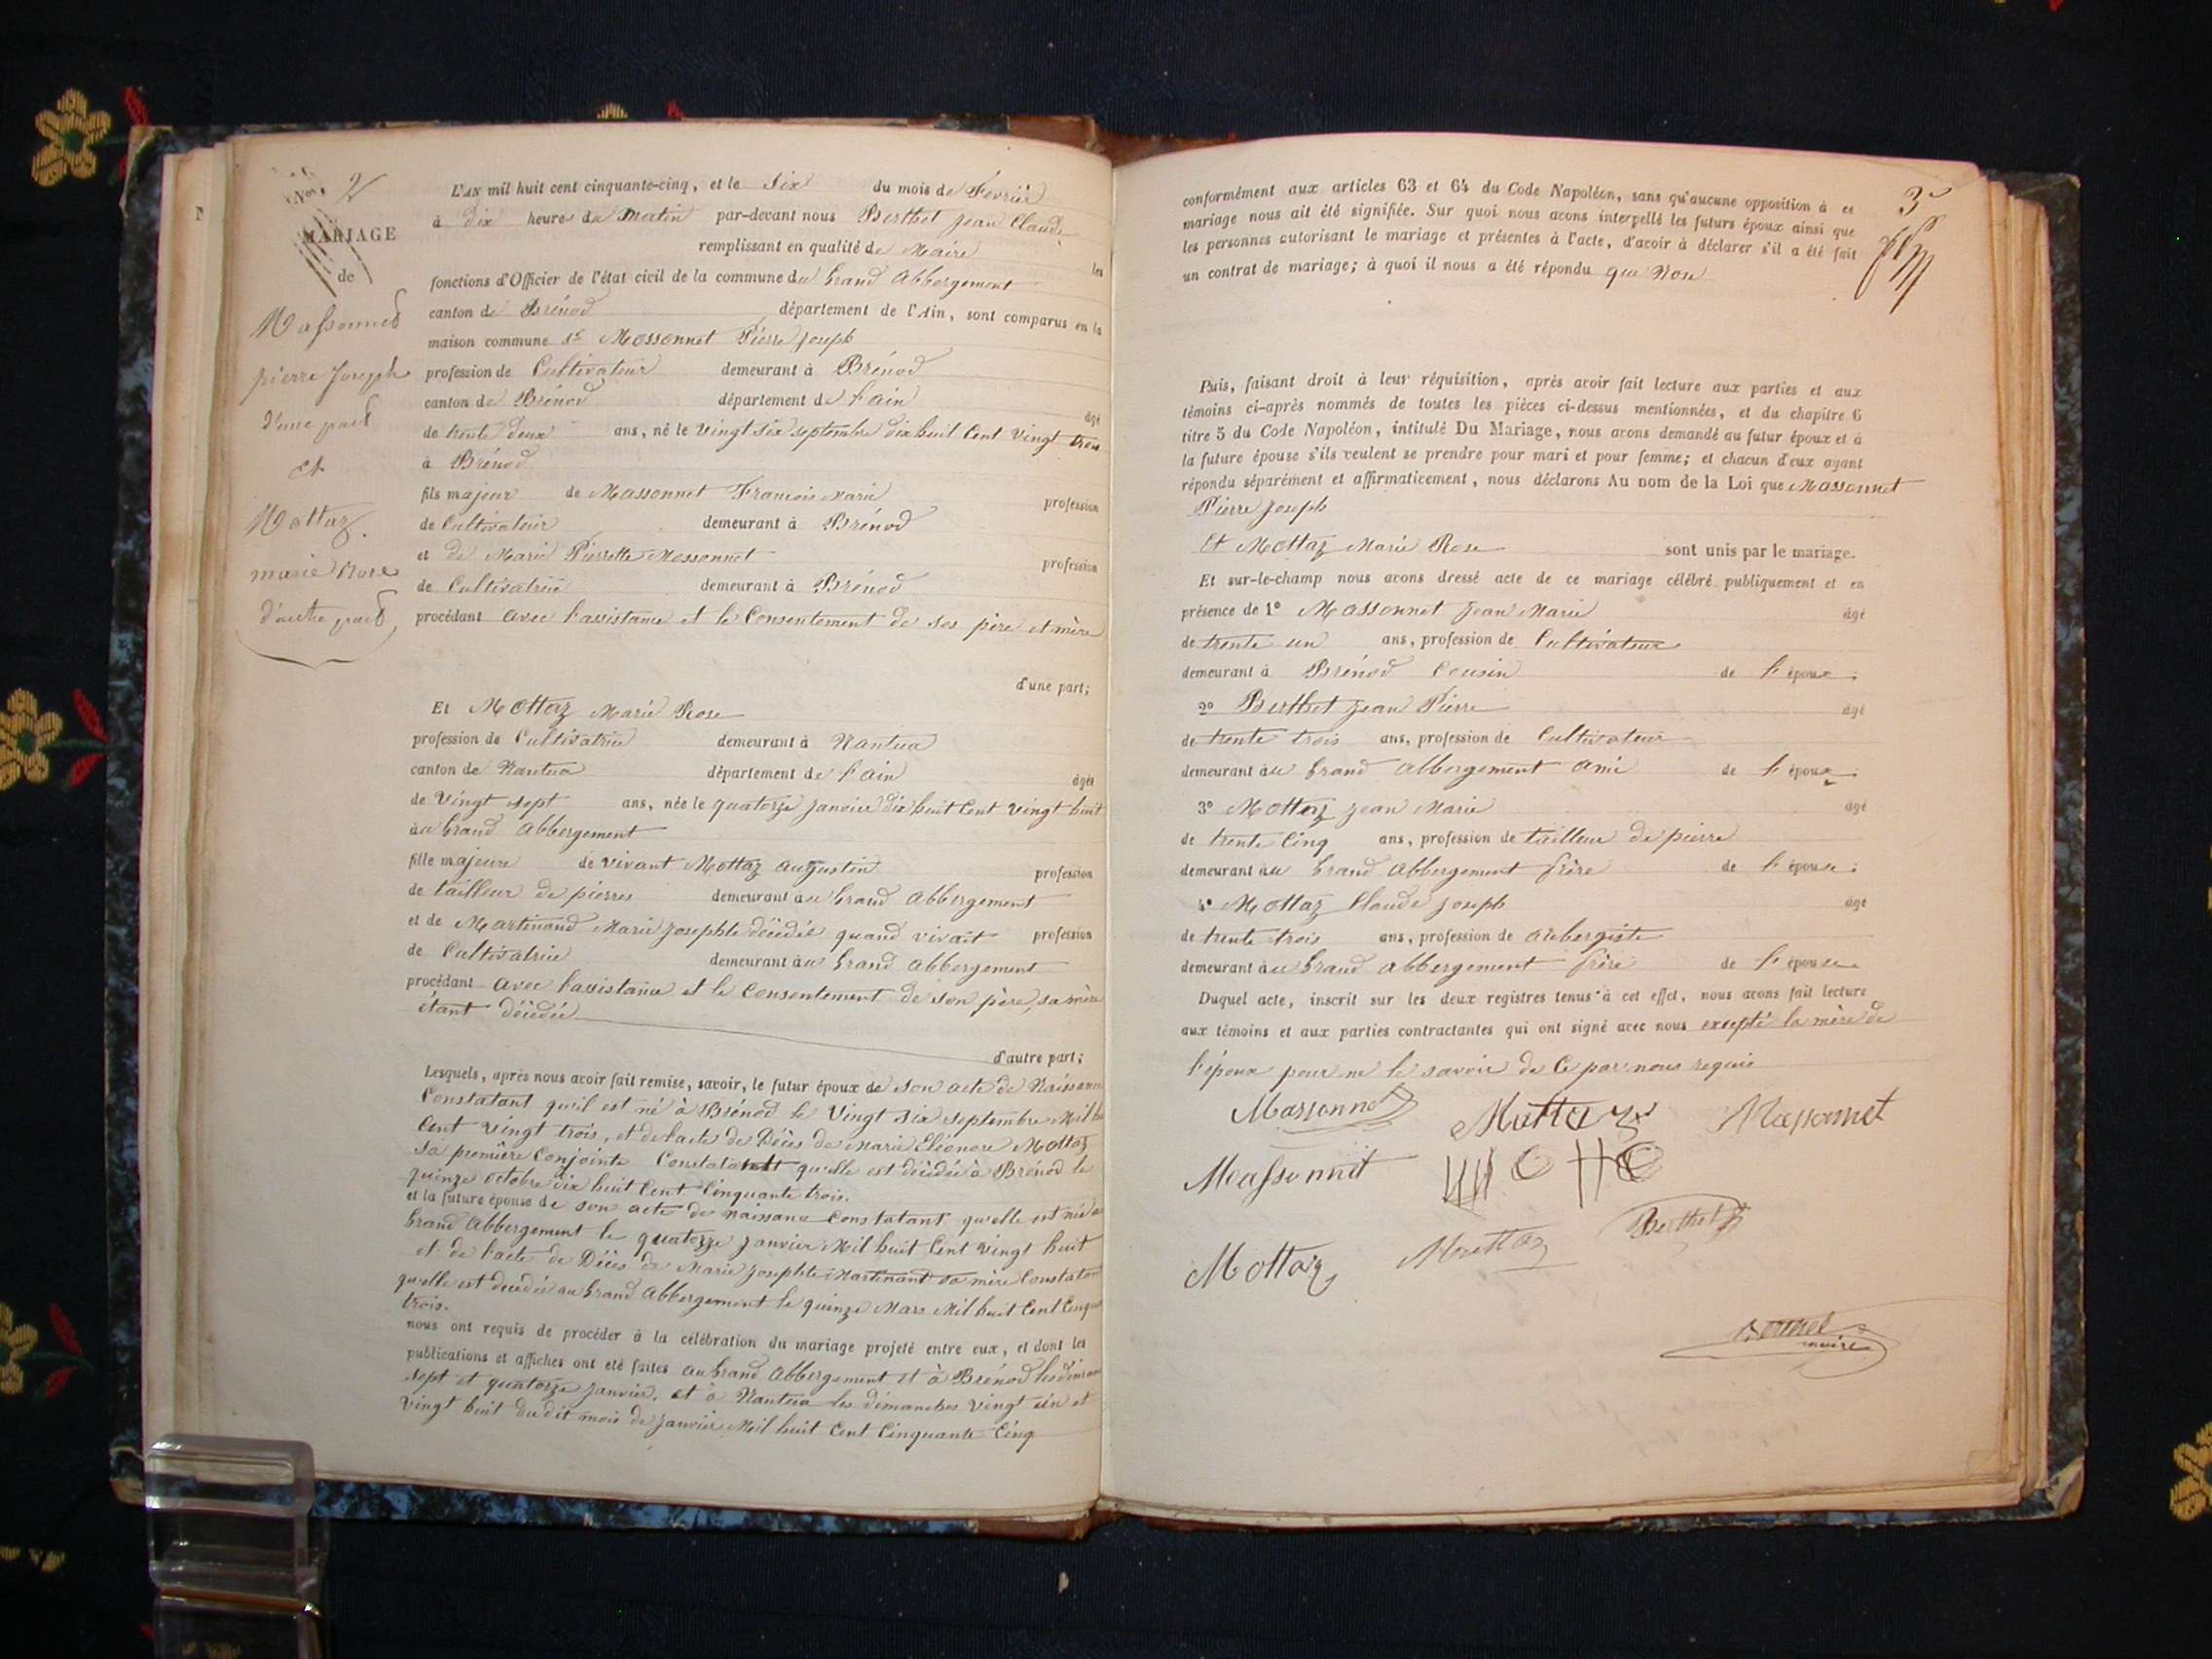 Nos. 2
MARIAGE
de
Massonnet
pierre Joseph
d'une part
et
Mottaz
marie Rose
d'autre part,
L'AN mil huit cent cinquante-cinq, et le Six du mois de Fevrier
à dix heures du Matin par-devant nous Berthet Jean Claude
remplissant en qualité de Maire les
fonctions d'Officier de l'état civil de la commune du Grand Abbergement
canton de Brénod département de l'Ain, sont comparus en la
maison commune Sr Massonnet Pierre Joseph
profession de Cultivateur demeurant à Brénod
canton de Brénod département de l'ain âgé
de trente deux ans, né le vingt six septembre dix huit Cent vingt trois
à Brénod
fils majeur de Massonnet Francois Marie profession
de Cultivateur demeurant à Brénod
et de Marie Pierrette Massonnet profession
de Cultivatrice demeurant à Brénod
procédant avec l'assistance et le Consentement de ses père et mère
d'une part;
Et Mottaz Marie Rose
profession de Cultivatrice demeurant à Nantua
canton de Nantua département de l'ain âgée
de vingt sept ans, née le quatorze janvier dix huit Cent vingt huit
au Grand Abbergement
fille majeure de vivant Mottaz Augustin profession
de tailleur de pierres demeurant au Grand Abbergement
et de Martinand Marie Josephte décédée quand vivait profession
de Cultivatrice demeurant au Grand Abbergement
procédant avec l'assistance et le Consentement de son père, sa mère
étant décédée
d'autre part;
Lesquels, après nous avoir fait remise, savoir, le futur époux de son acte de Naissance
Constatant qu'il est né à Brénod le Vingt six septembre Mil huit
Cent vingt trois, et de l'acte de Décès de Marie Eléonore Mottaz
sa première Conjointe Constatant qu'elle est décédée à Brénod le
quinze octobre dix huit Cent Cinquante trois.
et la future épouse de son acte de naissance Constatant qu'elle est née au
Grand Abbergement le quatorze janvier Mil huit Cent vingt huit
et de l'acte de Décès de Marie Josephte Martinant sa mère Constatant
qu'elle est decédée au Grand Abbergement le quinze Mars Mil huit Cent Cinquante
trois.
nous ont requis de procéder à la célébration du mariage projeté entre eux, et dont les
publications et affiches ont été faites au Grand Abbergement et à Brénod les
sept et quatorze janvier, et à Nantua les dimanches vingt un et
vingt huit du dit mois de janvier Mil huit Cent Cinquante Cinq
3
conformément aux articles 63 et 64 du Code Napoléon, sans qu'aucune opposition à ce
mariage nous ait été signifiée. Sur quoi nous avons interpellé les futurs époux ainsi que
les personnes autorisant le mariage et présentes à l'acte, d'avoir à déclarer s'il a été fait
un contrat de mariage; à quoi il nous a été répondu que Non
Puis, faisant droit à leur réquisition, après avoir fait lecture aux parties et aux
témoins ci-après nommés de toutes les pièces ci-dessus mentionnées, et du chapitre 6
titre 5 du Code Napoléon, intitulé Du Mariage, nous avons demandé au futur époux et à
la future épouse s'ils veulent se prendre pour mari et pour femme; et chacun d'eux ayant
répondu séparément et affirmativement, nous déclarons Au nom de la Loi que Massonnet
Pierre Joseph
Et Mottaz Marie Rose sont unis par le mariage.
Et sur-le-champ nous avons dressé acte de ce mariage célébré publiquement et en
présence de 1° Massonnet Jean Marie âgé
de trente un ans, profession de Cultivateur
demeurant à Brénod Cousin de l'époux;
2° Berthet Jean Pierre âgé
de trente trois ans, profession de Cultivateur
demeurant au Grand Abbergement ami de l'époux;
3° Mottaz Jean Marie âgé
de trente Cinq ans, profession de tailleur de pierre
demeurant au Grand Abbergement frère de l'épouse;
4° Mottaz Claude Joseph âgé
de trente trois ans, profession de aubergiste
demeurant au Grand Abbergement frère de l'épouse
Duquel acte, inscrit sur les deux registres tenus à cet effet, nous avons fait lecture
aux témoins et aux parties contractantes qui ont signé avec nous excepté la mère de
l'époux pour ne le savoir de Ce par nous requis
Massonnet Mottaz Massonnet
Massonnet
Mottaz Mottaz Berthet
Berthet
maire